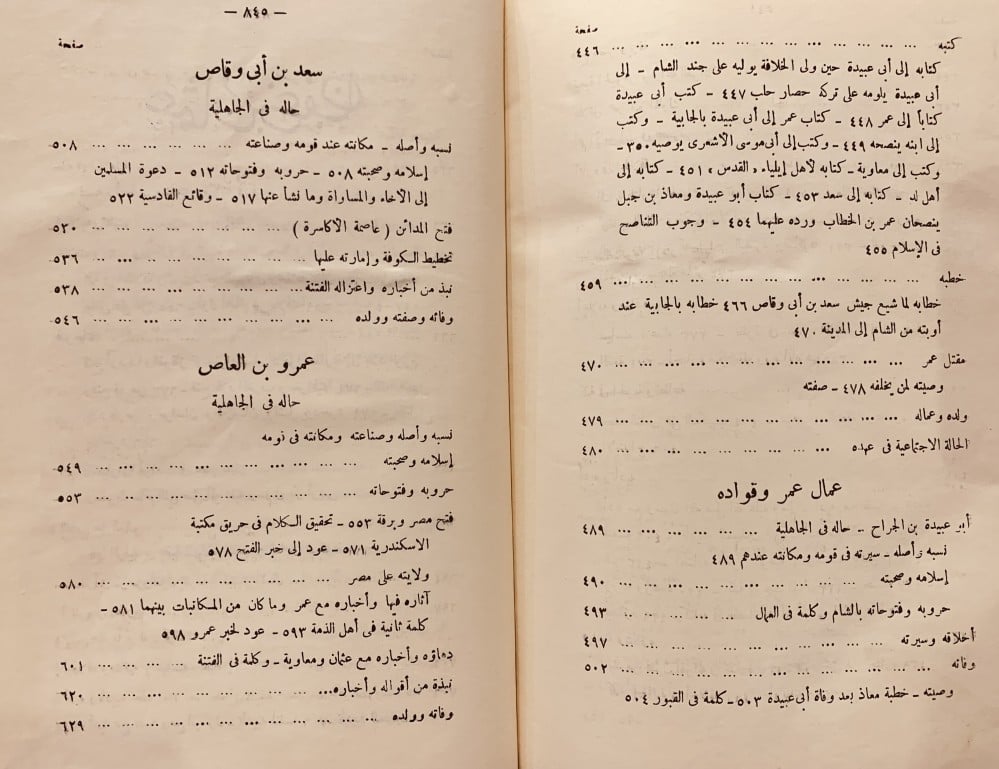 صفحة
كتبه ... ... ... ... ... ... ... ... ... ... ... ... ... ٤٤٦
كتابه إلى أبى عبيدة حين ولى الخلافة يوليه على جند الشام ـ إلى
أبى عبيدة يلومه على تركه حصار حلب ٤٤٧ ـ كتب أبى عبيدة
كتاباً إلى عمر ٤٤٨ ـ كتاب عمر إلى أبى عبيدة بالجابية ـ وكتب
إلى ابنه ينصحه ٤٤٩ ـ وكتب إلى أبى موسى الأشعرى يوصيه ٣٥٠ ـ
وكتب إلى معاوية ـ كتابه لأهل إيلياء « القدس » ٤٥١ ـ كتابه إلى
أهل لد ـ كتابه إلى سعد ٤٥٣ ـ كتاب أبو عبيدة ومعاذ بن جبل
ينصحان عمر بن الخطاب ورده عليهما ٤٥٤ ـ وجوب التناصح
فى الإسلام ٤٥٥
خطبه ... ... ... ... ... ... ... ... ... ... ... ... ٤٥٩
خطابه لما شيع جيش سعد بن أبى وقاص ٤٦٦ خطابه بالجابية عند
أوبته من الشام إلى المدينة ٤٧٠
مقتل عمر ... ... ... ... ... ... ... ... ... ... ... ٤٧٠
وصيته لمن يخلفه ٤٧٨ ـ صفته
ولده وعماله ... ... ... ... ... ... ... ... ... ... ٤٧٩
الحالة الاجتماعية فى عهده ... ... ... ... ... ... ... ... ٤٨٠
عمال عمر وقواده
أبو عبيدة بن الجراح ـ حاله فى الجاهلية ... ... ... ... ... ... ٤٨٩
نسبه وأصله ـ سيرته فى قومه ومكانته عندهم ٤٨٩
إسلامه وصحبته ... ... ... ... ... ... ... ... ... ... ٤٩٠
حروبه وفتوحاته بالشام وكلمة فى العمال ... ... ... ... ... ٤٩٣
أخلاقه وسيرته ... ... ... ... ... ... ... ... ... ... ٤٩٧
وفاته ... ... ... ... ... ... ... ... ... ... ... ... ٥٠٢
وصيته ـ خطبة معاذ بعد وفاة أبى عبيدة ٥٠٣ ـ كلمة فى القبور ٥٠٤
— ٨٤٥ —
صفحة
سعد بن أبى وقاص
حاله فى الجاهلية
نسبه وأصله ـ مكانته عند قومه وصناعته ... ... ... ... ... ... ٥٠٨
إسلامه وصحبته ٥٠٨ ـ حروبه وفتوحاته ٥١٢ ـ دعوة المسلمين
إلى الأخاء والمساراة وما نشأ عنها ٥١٧ ـ وقائع القادسية ٥٢٢
فتح المدائن ( عاصمة الأكاسرة ) ... ... ... ... ... ... ... ٥٣٠
تخطيط الكوفة وإمارته عليها ... ... ... ... ... ... ... ... ٥٣٦
نبذ من أخباره واعتزاله الفتنة ... ... ... ... ... ... ... ... ٥٣٨
وفاته وصفته وولده ... ... ... ... ... ... ... ... ... ٥٤٦
عمرو بن العاص
حاله فى الجاهلية
نسبه وأصله وصناعته ومكانته فى نومه
إسلامه وصحبته ... ... ... ... ... ... ... ... ... ... ٥٤٩
حروبه وفتوحاته ... ... ... ... ... ... ... ... ... ... ٥٥٣
فتح مصر وبرقة ٥٥٣ ـ تحقيق الكلام فى حريق مكتبة
الاسكندرية ٥٧١ ـ عود إلى خبر الفتح ٥٧٨
ولايته على مصر ... ... ... ... ... ... ... ... ... ... ٥٨٠
آثاره فيها وأخباره مع عمر وما كان من المكاتبات بينهما ٥٨١ ـ
كلمة ثانية فى أهل الذمة ٥٩٣ ـ عود لخبر عمرو ٥٩٨
دهاؤه وأخباره مع عثمان ومعاوية ـ وكلمة فى الفتنة ... ... ... ... ٦٠١
نبذة من أقواله وأخباره ... ... ... ... ... ... ... ... ... ٦٢٠
وفاته وولده ... ... ... ... ... ... ... ... ... ... ... ٦٢٩